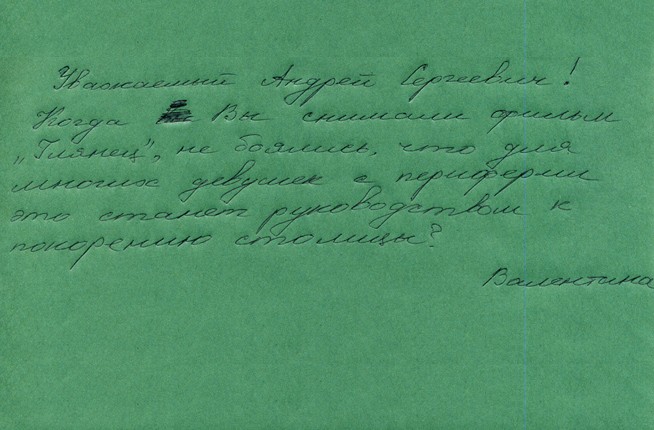 Уважаемый Андрей Сергеевич!
Когда Вы снимали фильм
„Глянец", не боялись, что для
многих девушек с периферии
это станет руководством к
покорению столицы?
Валентина